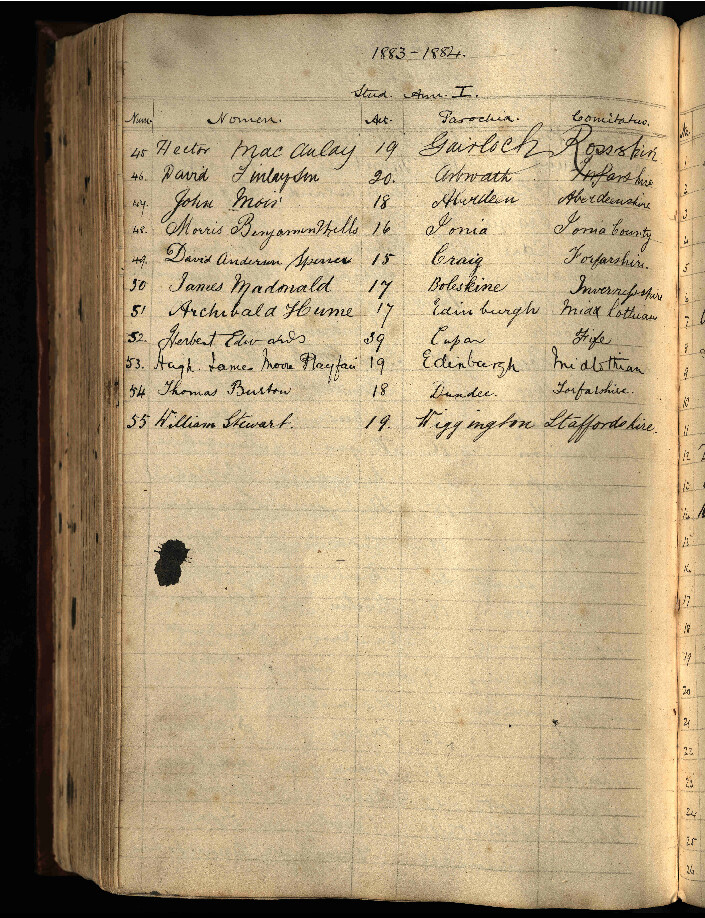 1883-1884.
Stud. Ann. I.
Num. Nomen. Aet. Parochia. Comitatus.
45 Hector MacAulay 19 Gairloch Rossshire
46. David Finlayson 20. Arbroath Forfarshire
47. John Moir 18 Aberdeen Aberdeenshire
48. Morris Benjamin Wells 16 Ionia Ionia County
49. David Anderson Spence 15 Craig Forfarshire.
50 James Madonald 17 Boleskine Invernessshire
51 Archibald Hume 17 Edinburgh Midd lothian
52. Herbert Edwards 39 Cupar Fife
53. Hugh James Moore Playfair 19 Edinburgh Midlothian
54 Thomas Burton 18 Dundee. Forfarshire.
55 William Stewart. 19. Wiggington Staffordshire.
No.
1
2
3
4
5
6
7
8
9
10
11
12
13
14
15
16
17
18
19
20
21
22
23
24
25
26